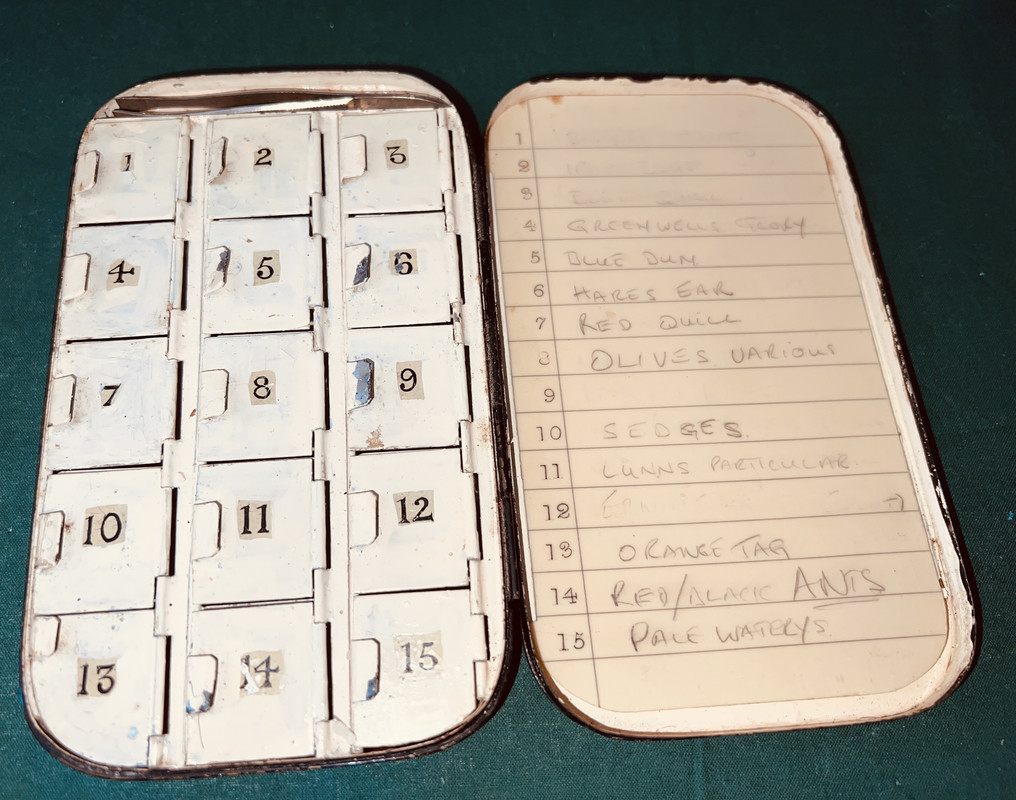 1 2 3
4 5 6
7 8 9
10 11 12
13 14 15
1
2
3
4 GREENWELLS GLORY
5 BLUE DUN
6 HARES EAR
7 RED QUILL
8 OLIVES VARIOUS
9
10 SEDGES
11 LUNNS PARTICULAR
12
13 ORANGE TAG
14 RED/BLACK ANTS
15 PALE WATERYS